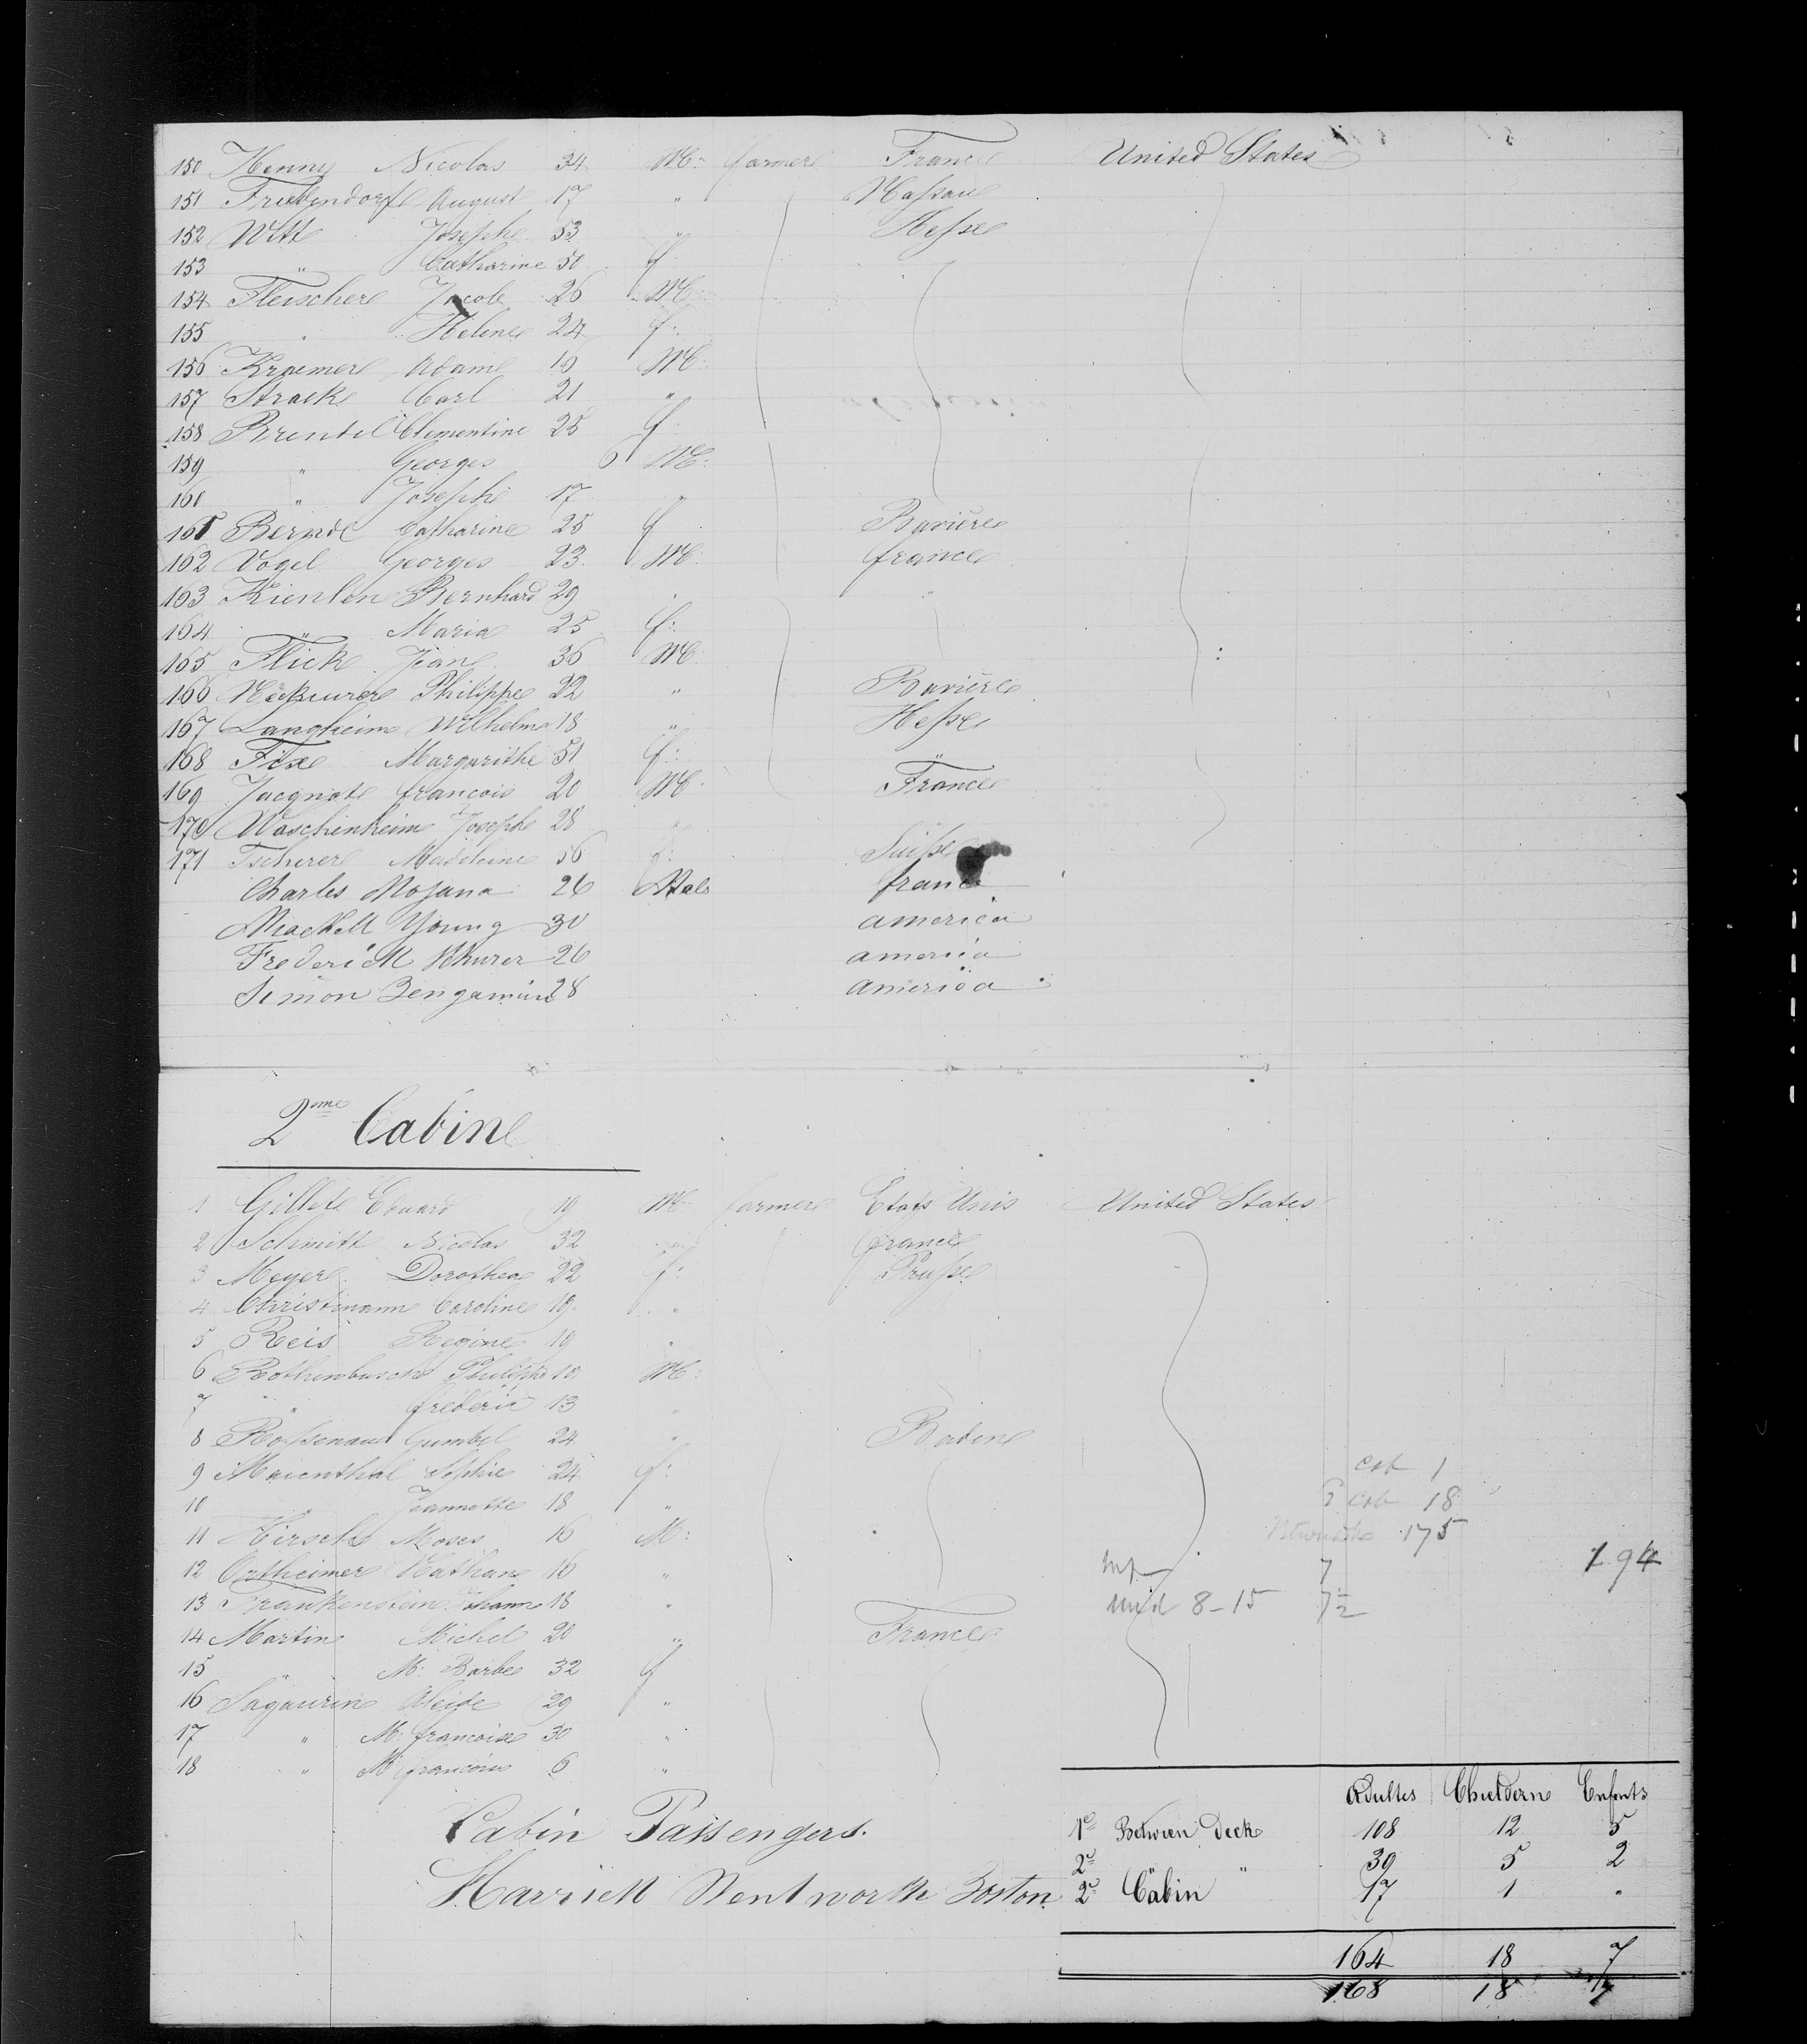 150 Henny Nicolas 34 M: farmer France United States
151 Friebendorf August 17 " Naſsau
152 Witt Joseph 53 " Heſse
153 " Catharine 50 f
154 Fleischer Jacob 26 M:
155 " Helene 24 f:
156 Kraemer Adam 19 M:
157 Strack Carl 21 "
158 Brentel Clementine 25 f
159 " Georges 6 M:
160 " Joseph 17 "
161 Catharine 25 f Bavière
162 Vogel Georges 23 M: france
163 Kienlen Bernhard 29 " "
164 " Maria 25 f:
165 Flick Jean 36 M:
166 Philippe 22 " Bavière
167 Langheim Wilhelm 18 " Heſse
168 Fix Margarithe 51 f:
169 Jacquot francois 20 M: France
170 Waschenheim Joseph 28
171 Tscherer Madeleine 56 f: Suiſse
Charles Mojana 26 Male france
Young 30 america
Frederick 26 america
Simon Bengamin 28 america
2me Cabine
1 Gillet Eduard 19 M: farmer Etats Unis United States
2 Schmitt Nicolas 32 " france
3 Meyer Dorothea 22 f: Pruſse
4 Christmann Caroline 19 "
5 Reis Regine 19 "
6 Rothenbusch Philippe 19 M:
7 " frédéric 13 "
8 Roſsenau Gumbel 24 " Baden
9 Maienthal Sophie 24 f:
cab 1
10 " Jeannette 18 "
2 cab 18
11 Hirsch Moses 16 M:
175
12 Ortheimer Nathan 16 "
7 194
13 Frankenstein 18 "
8-15 7½
14 Martin Michel 20 " France
15 " M: Barbe 32 f
16 Sagaurin 29 "
17 " M: francoise 30 "
18 " M francois 6 "
Adultes Chieldern Enfents
Cabin Passengers.
1e Between deck 108 12 5
2e " " 39 5 2
Wentworth Boston
2e Cabin 17 1 "
164 18 7
168 18 7